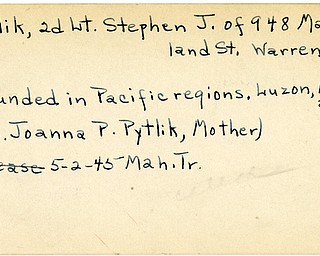 lik, 2d Lt. Stephen J. of 948 Ma
land St. Warren
unded in Pacific regions. Luzon,
. Joanna P. Pytlik, Mother)
ease 5-2-45 Mah. Tr.